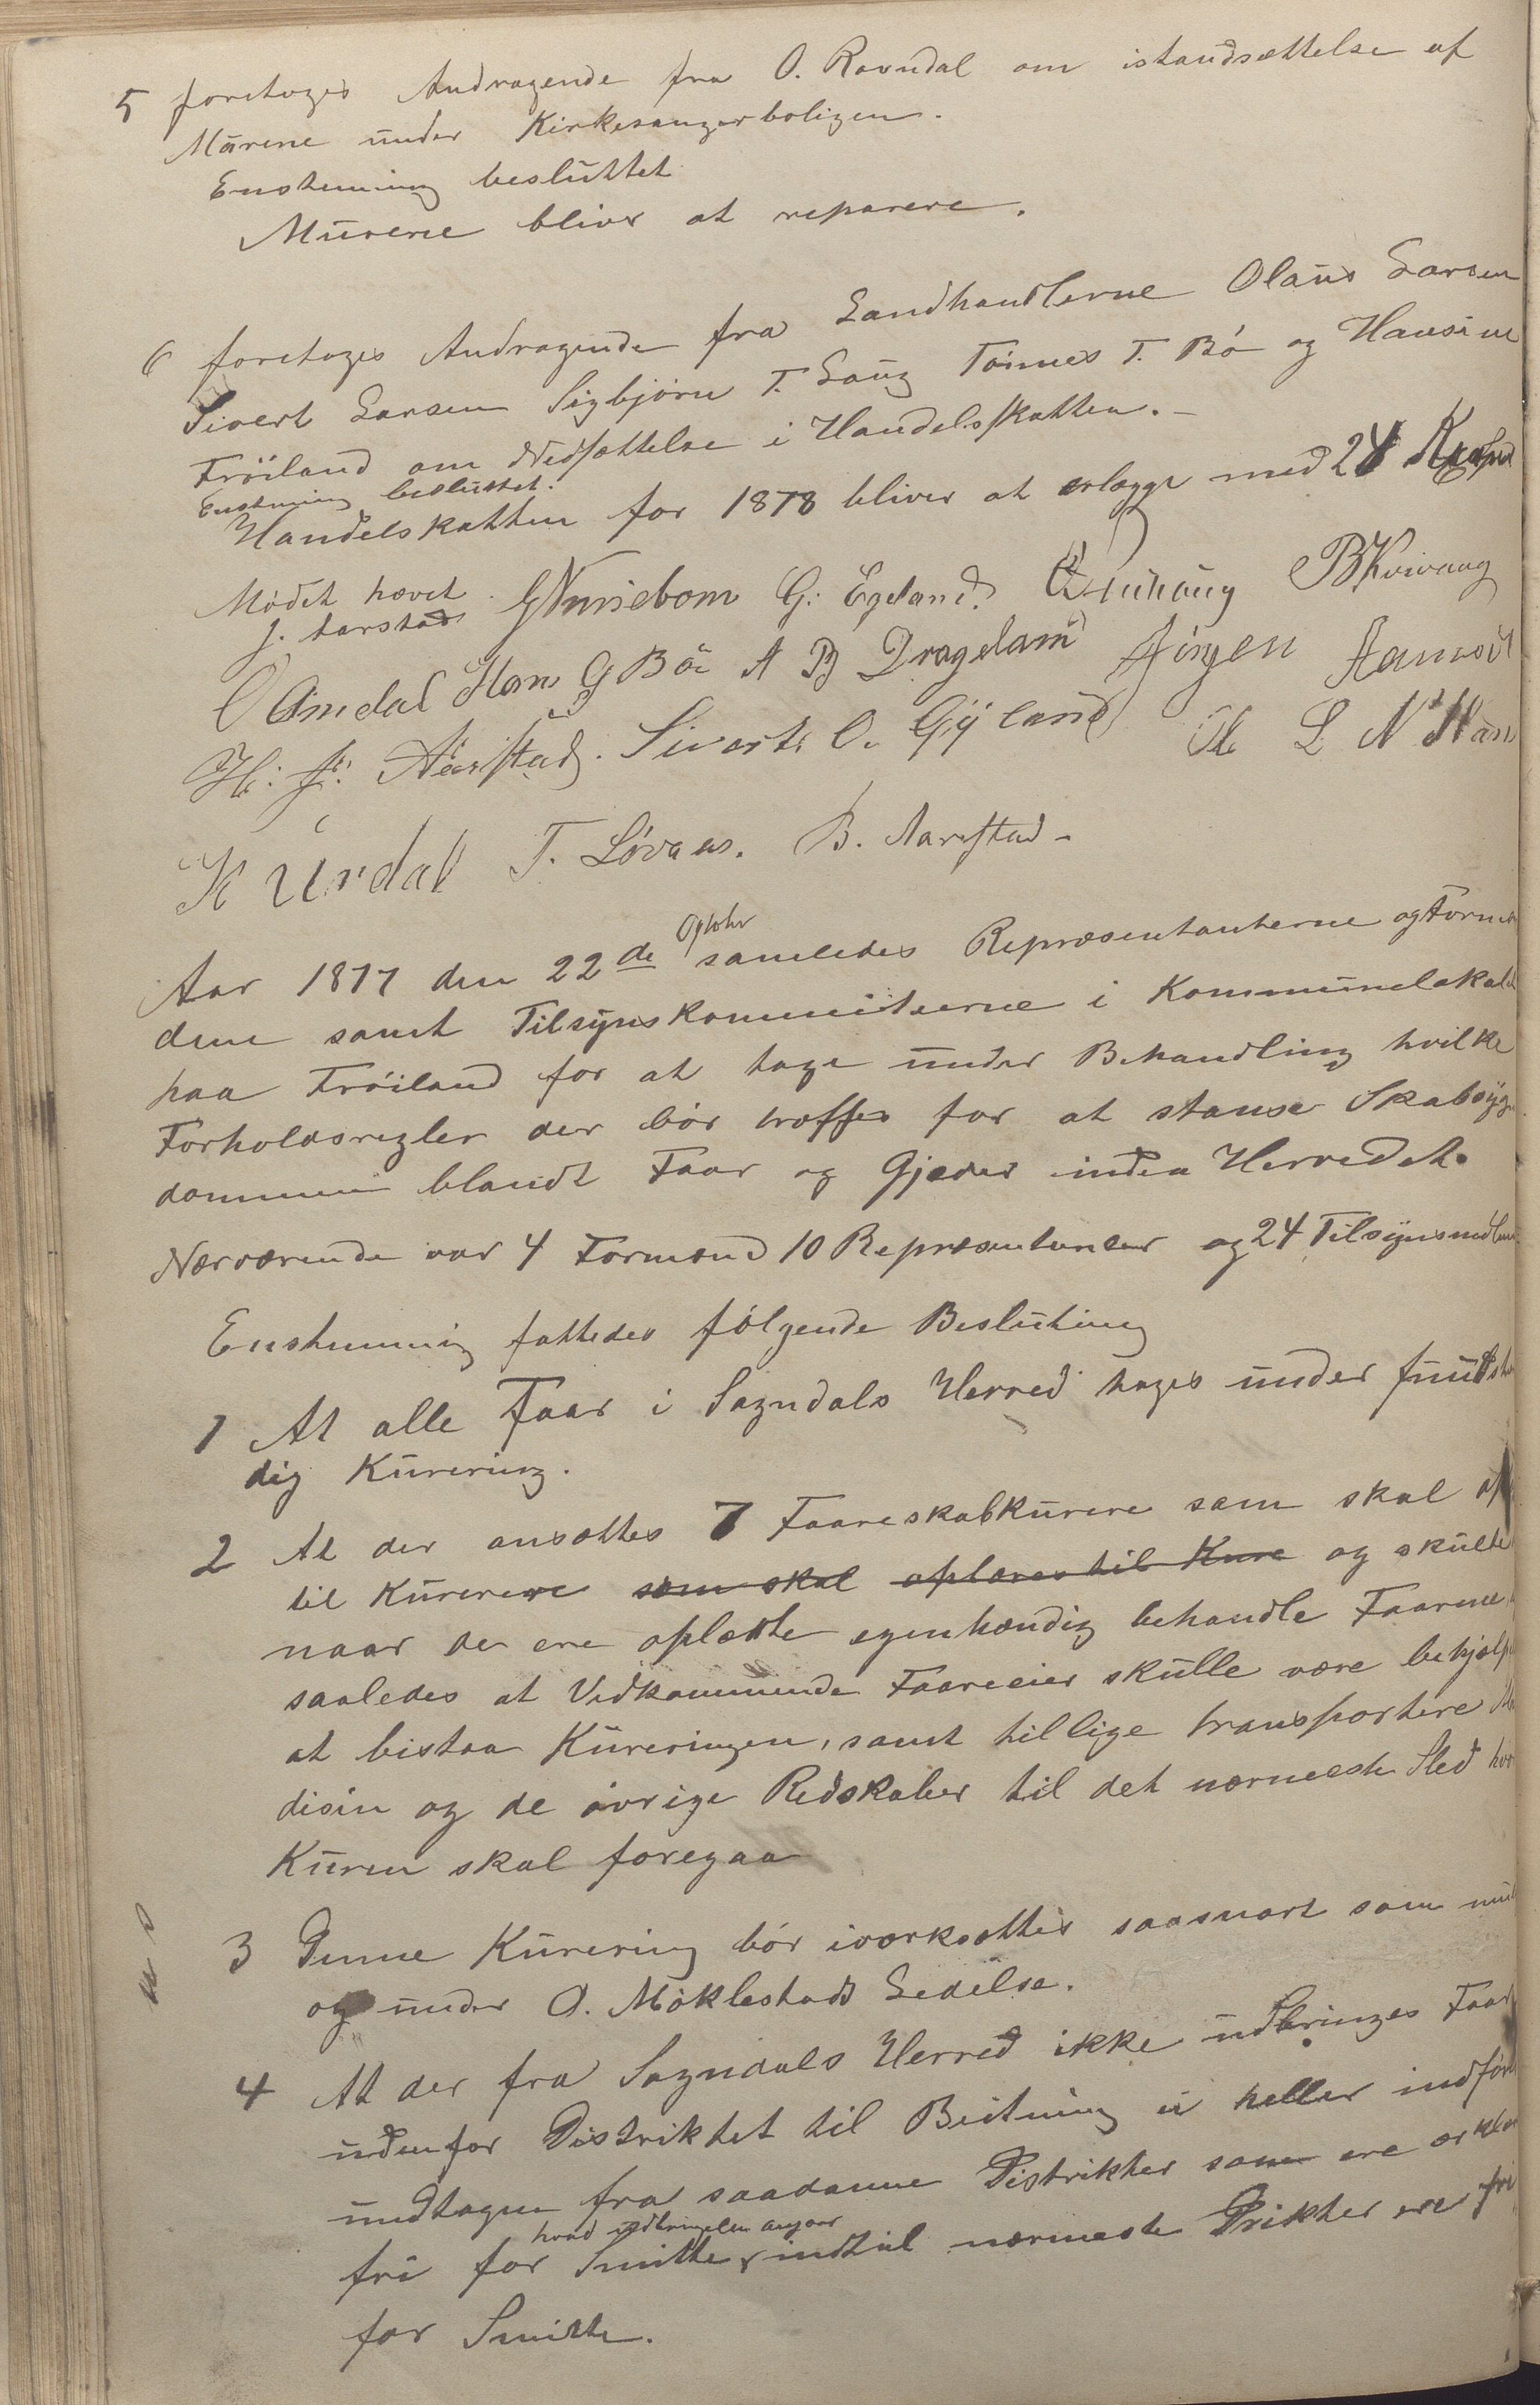 5 foretoges Andragende fra O. Ravndal om istandsættelse af
Murene under Kirkesangerboligen.
Enstemmig besluttet
Murene bliver at reparere.
6 foretoges Andragende fra Landhandlerne Olaus Larsen
Sivert Larsen Sigbjørn T. Haug Tønnes T. Bø og Hansine
Frøiland om Nedsættelse i Handelsskatten.-
Enstemmig besluttet.
Handelskatten for 1878 bliver at erlægge med 24
Mødet hævet.
J. Aarstad G Egeland. B Kvivaug
O Omdal Hans G Bö A B Drageland Jörgen
H: J: Aarstad. Sivert O. Gyland L N
K Urdal T. Løvaas. B. Aarstad-
Optober
Aar 1877 den 22de samledes Repræsentanterne og Formæn
dene samt Tilsynskommiteerne i Kommunelokalet
paa Frøiland for at tage under Behandling hvilke
Forholdsregler der bør træffes for at stanse Skabsyg
dommen blandt Faar og Gjeder inden Herredet.
Nærværende var 4 Formænd 10 Repræsentanter og 24 Tilsynsmedlem
Enstemmig fattedes følgende Beslutning
1 At alle Faar i Sogndals Herred tages under fuldstæn
dig Kurering.
2 At der ansættes 7 Faareskabkurere som skal op
til Kurerere som skal oplæres til Kure og skulle
naar de ere oplærte egenhændig behandle Faarene
saaledes at Vedkommende Faareeier skulle være behjælp
at bistaa Kureringen, samt tillige transportere Me
disin og de øvrige Redskaber til det nærmeste Sted hvor
Kuren skal foregaa
3 Denne Kurering bør iværksættes saasnart som mul
og under O. Møklestads Ledelse.
4 At der fra Sogndals Herred ikke udbringes Faar
udenfor Distriktet til Beitning ei heller indføres
undtagen fra saadanne Distrikter som ere erklæ
hvad udbringelsen angaar
fri for Smitte, indtil nærmeste Drikter ere fri
for Smitte.